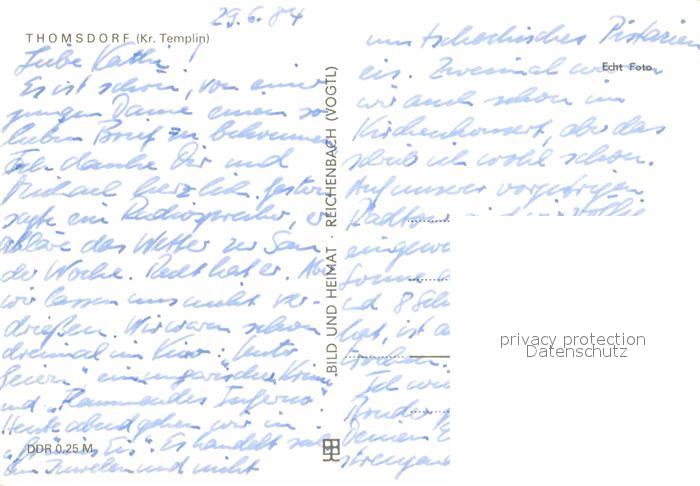 29.6.84
THOMSDORF (Kr. Templin)
Liebe Kathi!
Es ist schön, von einer
jungen Dame einen so
lieben Brief zu bekommen
Ich danke Dir und
Michael herzlich. Gestern
sagte ein Radiosprecher, er
erkläre das Wetter zur Sau
der Woche. Recht hat er. Aber
wir lassen uns nicht ver-
drießen. Wir waren schon
dreimal im Kino:
ein ungarischer Krimi
und "Flammendes Inferno"
Heute abend gehen wir in
Eis". Es handelt
den Juwelen und nicht
DDR 0,25 M
BILD UND HEIMAT · REICHENBACH (VOGTL)
um tschechisches Pistazien
eis. Zweimal waren
Echt Foto
wir auch schon im
Kirchenkonzert, aber das
schrieb ich wohl schon.
Auf unserer vorgestrigen
Radtour
eingew
Sonne
und 8
ist
Ich
Deinen
privacy protection
Datenschutz